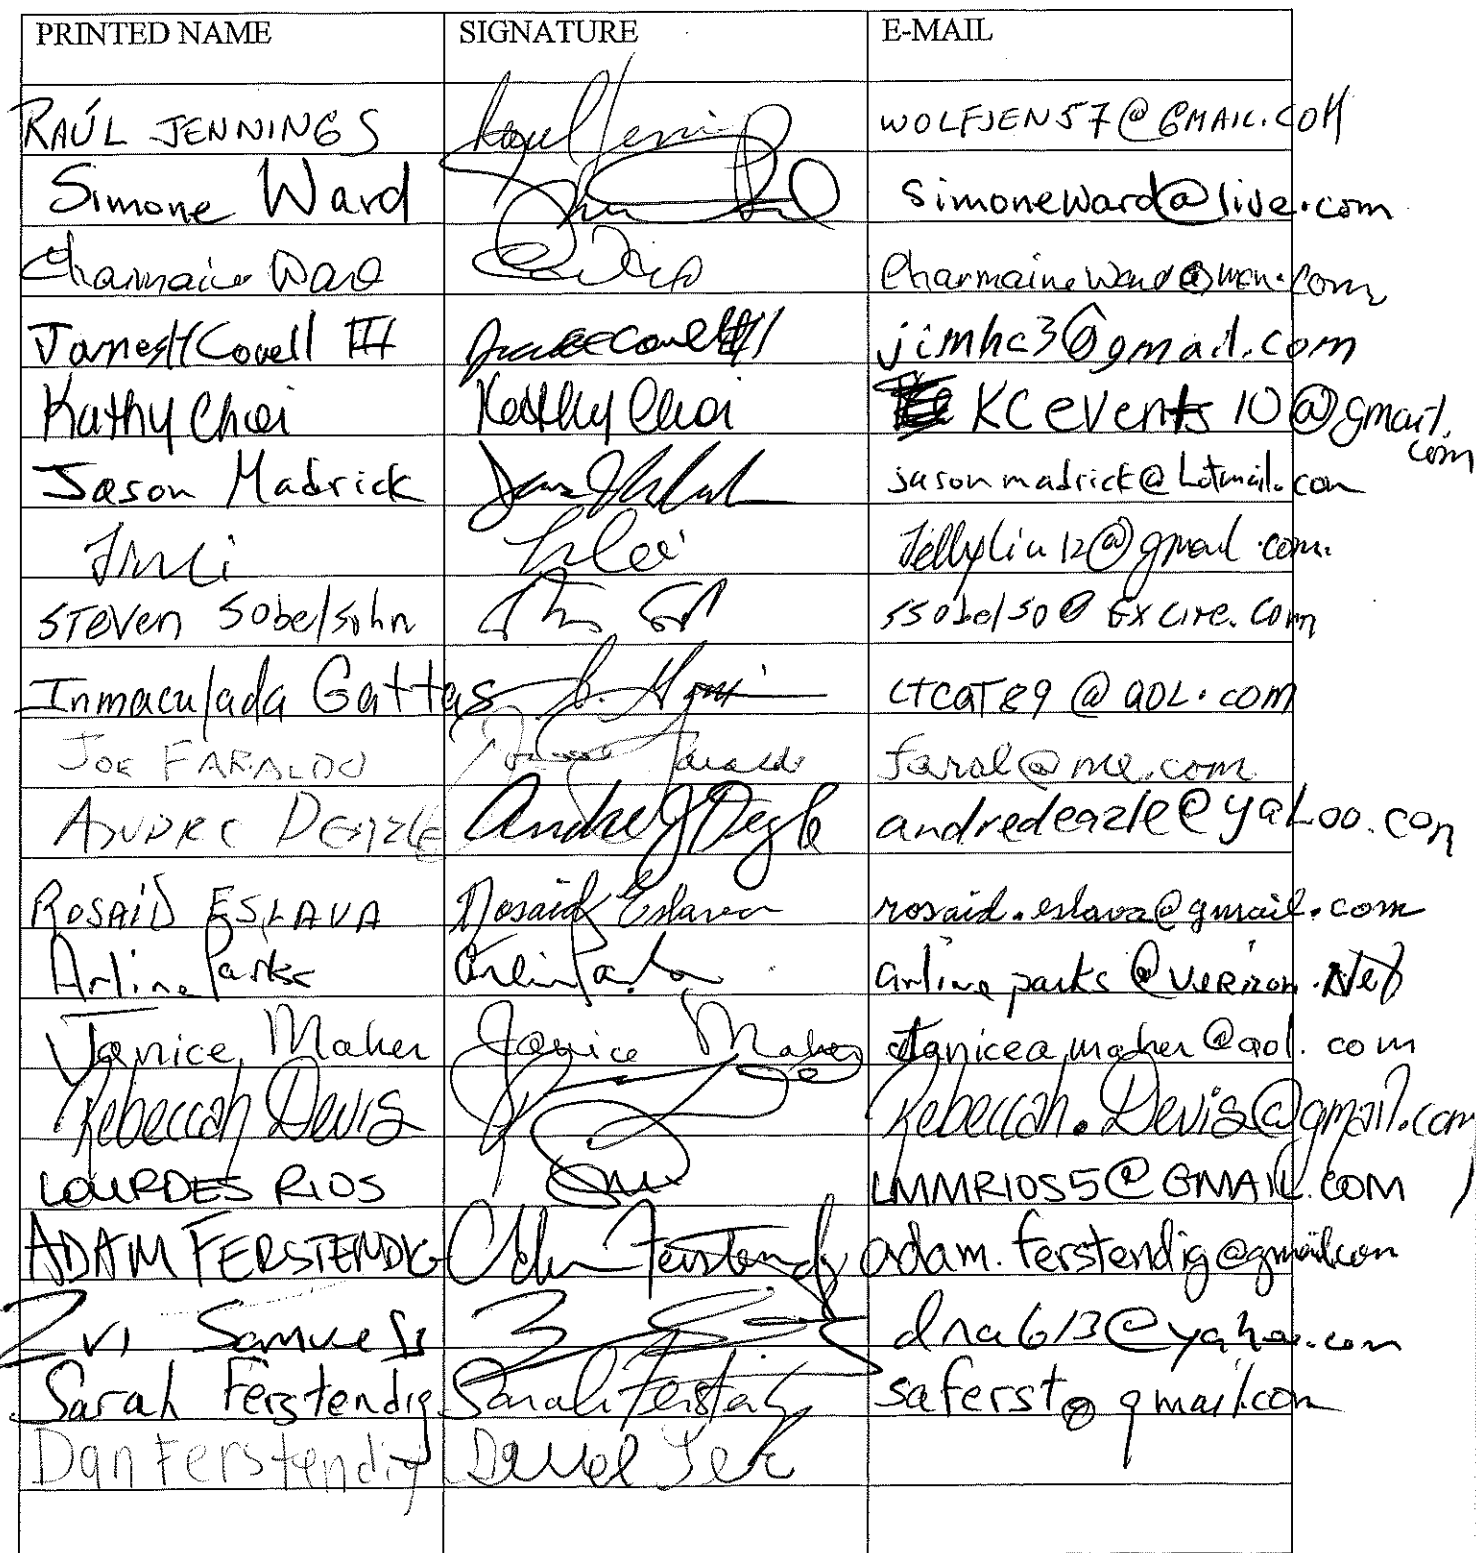 PRINTED NAME SIGNATURE E-MAIL
RAÚL JENNINGS Raul Jennings WOLFJEN57@GMAIL.COM
Simone Ward simoneward@live.com
Charmaine Ward CharmaineWard@msn.com
James H Covell III jimhc3@gmail.com
Kathy Choi Kathy Choi KCevents10@gmail.com
Jason Madrick jasonmadrick@hotmail.com
Jellyliu12@gmail.com.
STEVEN Sobelsohn ssobelso@excite.com
Inmaculada Gattas LTCAT89@AOL.COM
JOE FARALDO Faraldo faral@me.com
ANDRE DEAZLE Andre J Deazle andredeazle@yahoo.com
ROSAID ESLAVA Rosaid Eslava rosaid.eslava@gmail.com
Arline Parks Arline Parks arlineparks@verizon.Net
Janice Maher Janice Maher Janiceamaher@aol.com
Rebeccah Devis Rebeccah.Devis@gmail.com
LOURDES RIOS LMMRIOS5@GMAIL.COM
ADAM FERSTENDIG Adam Ferstendig adam.ferstendig@gmail.com
Zvi Samuels dna613@yahoo.com
Sarah Ferstendig Sarah Ferstendig saferst@gmail.com
Dan Ferstendig Daniel